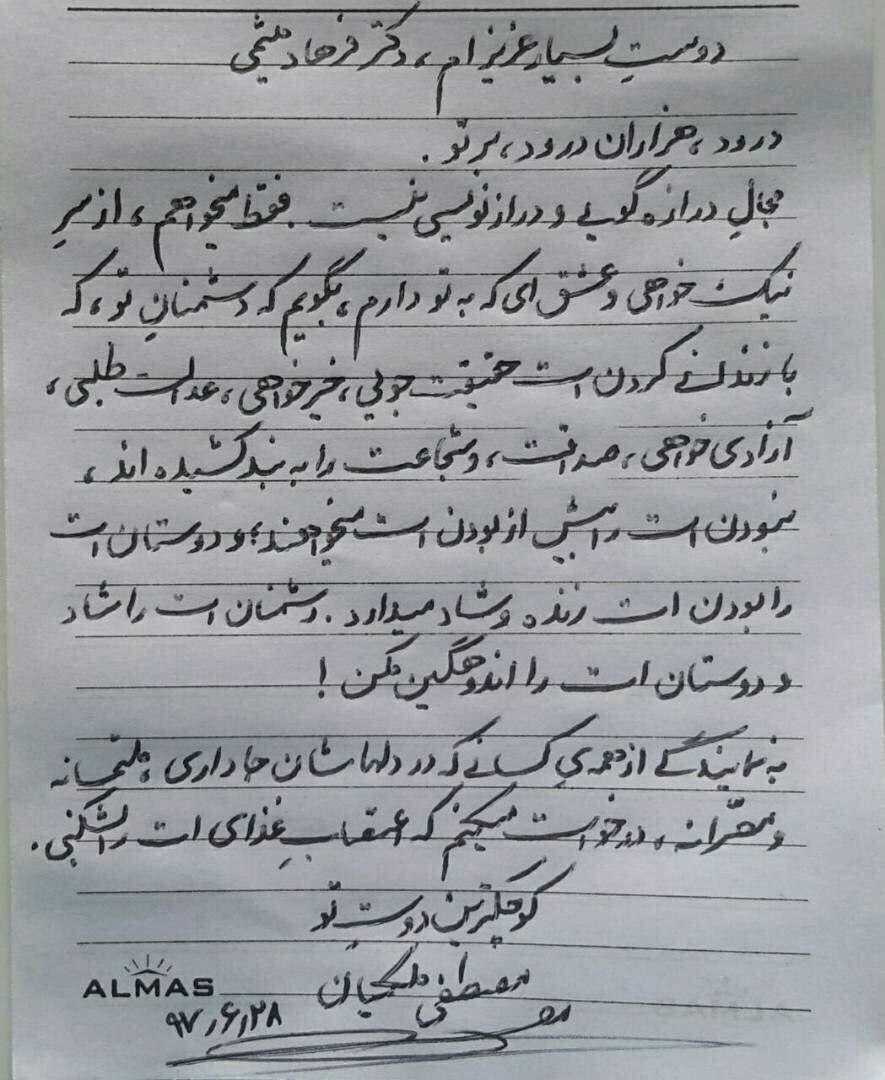 دوستِ بسیار عزیز ام، دکتر فرهاد میثمی
درود، هزاران درود، بر تو.
مجالِ درازه گویی و دراز نویسی نیست. فقط میخواهم، از سرِ
نیک خواهی و عشق ای که به تو دارم، بگویم که دشمنانِ تو، که
با زندانی کردن ات حقیقت جویی، خیرخواهی، عدالت طلبی،
آزادی خواهی، صداقت، و شجاعت را به بند کشیده اند،
نبودن ات را بیش از بودن ات میخواهند؛ و دوستان ات
را بودن ات زنده و شاد میدارد. دشمنان ات را شاد
و دوستان ات را اندوهگین مکن!
به نمایندگی از همه‌یِ کسانی که در دلهاشان جا داری، ملتمسانه
و مصّرانه، درخواست میکنم که اعتصابِ غذای ات را بشکنی.
کوچکترین دوستِ تو
مصطفی ملکیان
ALMAS
۹۷٫۶٫۲۸